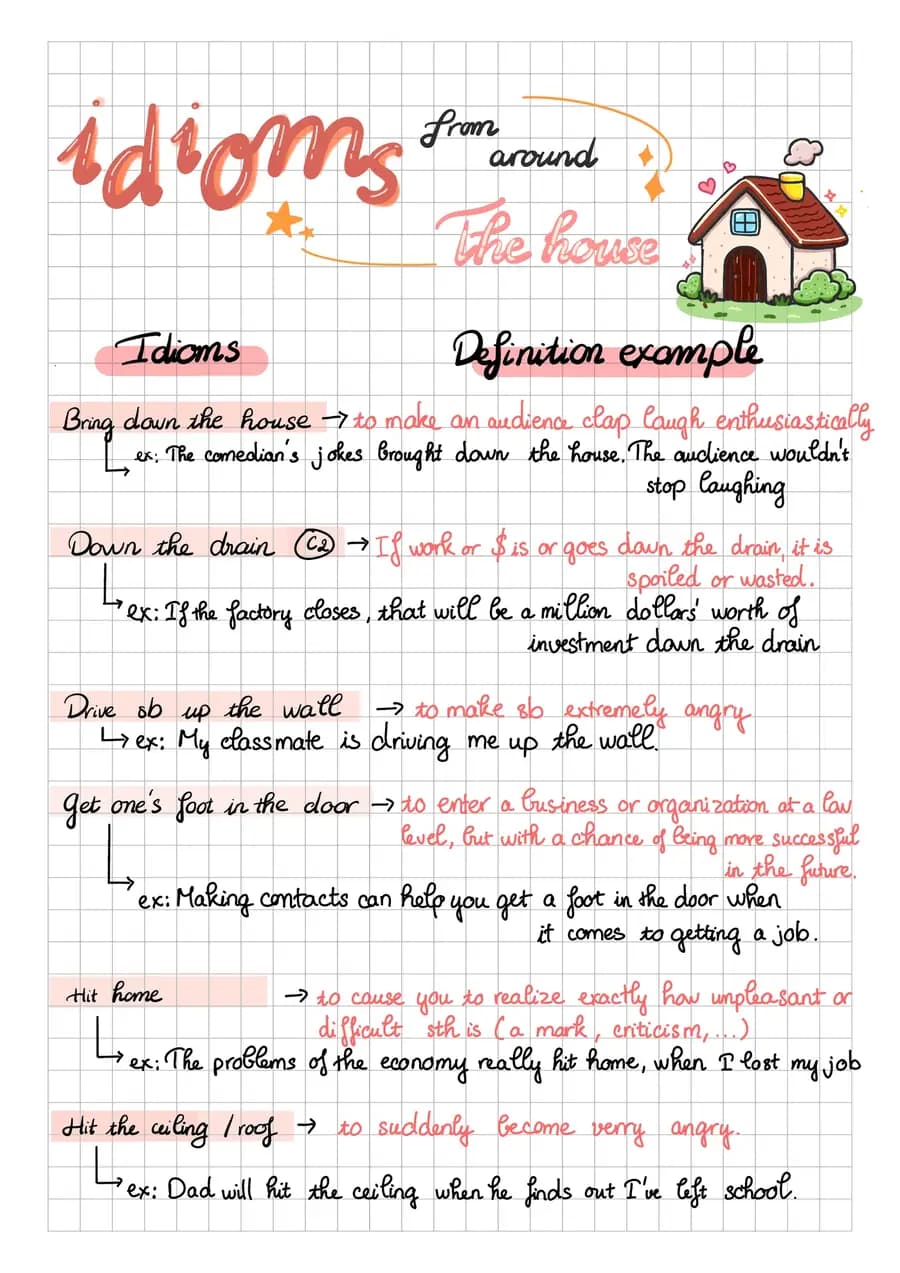 idioms from
around
The house
Idioms Definition example
Bring down the house → to make an audience clap laugh enthusiastically
ex: The comedian's jokes brought down the house. The audience wouldn't
stop laughing
Down the drain C2 → If work or $ is or goes down the drain, it is
spoiled or wasted.
ex: If the factory closes, that will be a million dollars' worth of
investment down the drain
Drive sb up the wall → to make sb extremely angry
ex: My classmate is driving me up the wall.
Get one's foot in the door → to enter a business or organization at a low
level, but with a chance of being more successful
in the future.
ex: Making contacts can help you get a foot in the door when
it comes to getting a job.
Hit home → to cause you to realize exactly how unpleasant or
difficult sth is (a mark, criticism, ...)
ex: The problems of the economy really hit home, when I lost my job
Hit the ceiling / roof → to suddenly become verry angry.
ex: Dad will hit the ceiling when he finds out I've left school.